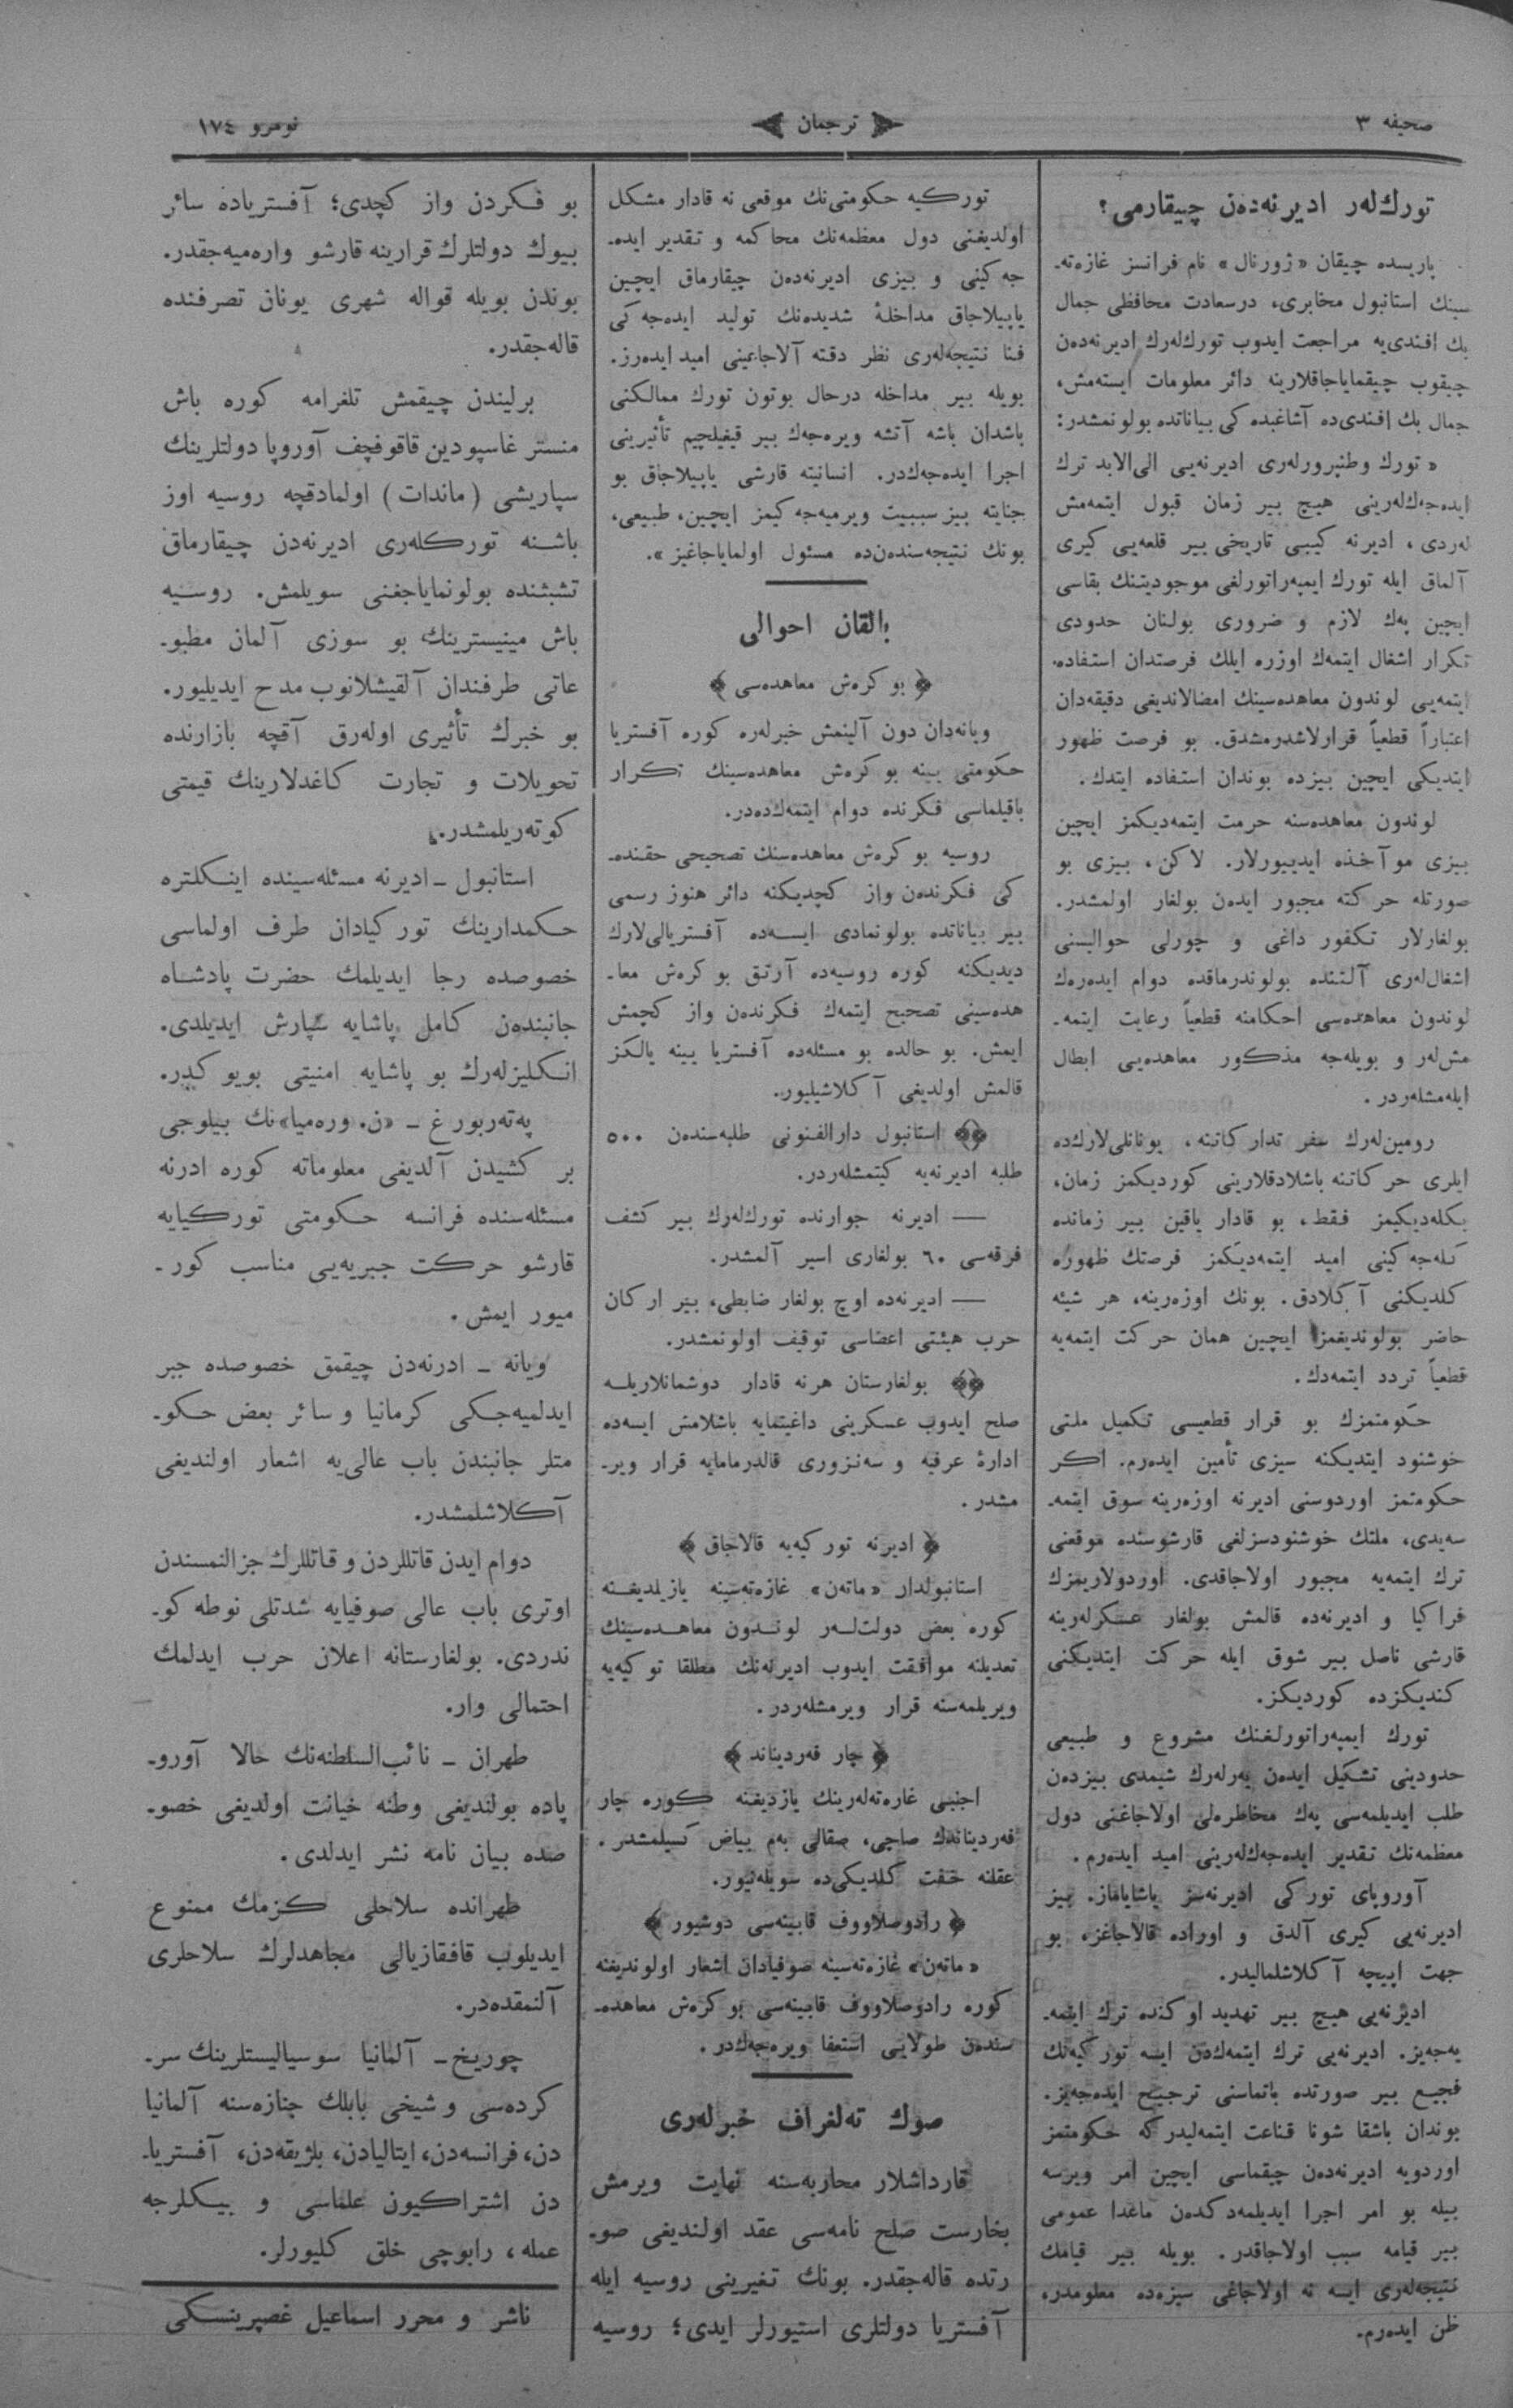 صحیفه ٣
ترجمان
نومرو ١٧٤
تورك‌لەر ادیرنەدەن چیقارمی؟
پاریسدە چیقان «ژورنال» نام فرانسز غازەتەـ
سینك استانبول مخابری، درسعادت محافظی جمال
بك افندی‌یه مراجعت ایدوب تورك‌لەرك ادیرنەدەن
چیقوب چیقمایاجاقلارینه دائر معلومات ایستەمش،
جمال بك افندی‌ده آشاغیده كی بیاناتده بولونمشدر:
« تورك وطنپرورلەری ادیرنەیی الی‌الابد ترك
ایدەجەك‌لەرینی هیچ بیر زمان قبول ایتمەمش
لەردی ، ادیرنه كیبی تاریخی بیر قلعەیی كیری
آلماق ایله تورك ایمپەراتورلغی موجودیتنك بقاسی
ایچین پەك لازم و ضروری بولنان حدودی
تكرار اشغال ایتمەك اوزره ایلك فرصتدان استفاده
ایتمەیی لوندون معاهدەسینك امضالاندیغی دقیقەدان
اعتباراً قطعیاً قرارلاشدرمشدق. بو فرصت ظهور
ایتدیكی ایچین بیزده بوندان استفاده ایتدك.
لوندون معاهدەسنه حرمت ایتمەدیكمز ایچین
بیزی موآخذه ایدییورلار. لاكن، بیزی بو
صورتله حركته مجبور ایدەن بولغار اولمشدر.
بولغارلار تكفور داغی و چورلی حوالیسنی
اشغال‌لەری آلتنده بولوندرماقده دوام ایدەرەك
لوندون معاهدەسی احكامنه قطعیاً رعایت ایتمەـ
مش‌لەر و بویلەجه مذكور معاهدەیی ابطال
ایلەمشلەردر .
رومین‌لەرك سفر تداركاتنه، یونانلی‌لارك‌ده
ایلری حركاتنه باشلادقلارینی كوردیكمز زمان،
بكلەدیكیمز فقط، بو قادار یاقین بیر زمانده
كلەجەكینی امید ایتمەدیكمز فرصتك ظهوره
كلدیكنی آكلادق. بونك اوزەرینه، هر شیئه
حاضر بولوندیغمز ایچین همان حركت ایتمەیه
قطعیاً تردد ایتمەدك .
حكومتمزك بو قرار قطعیسی تكمیل ملتی
خوشنود ایتدیكنه سیزی تأمین ایدەرم. اكر
حكومتمز اوردوسنی ادیرنه اوزەرینه سوق ایتمەـ
سەیدی، ملتك خوشنودسزلغی قارشوسنده موقعنی
ترك ایتمەیه مجبور اولاجاقدی. اوردولاریمزك
فراكیا و ادیرنەده قالمش بولغار عسكرلەرینه
قارشی ناصل بیر شوق ایله حركت ایتدیكنی
كندیكزده كوردیكز.
تورك ایمپەراتورلغنك مشروع و طبیعی
حدودینی تشكیل ایدەن یەرلەرك شیمدی بیزدەن
طلب ایدیلمەسی پەك مخاطرەلی اولاجاغنی دول
معظمەنك تقدیر ایدەجەك‌لەرینی امید ایدەرم .
آوروپای توركی ادیرنەسز یاشایاماز. بیز
ادیرنەیی كیری آلدق و اوراده قالاجاغز، بو
جهت اییجه آكلاشلمالیدر.
ادیرنەیی هیچ بیر تهدید اوكنده ترك ایتمەـ
یەجەیز. ادیرنەیی ترك ایتمەكدن ایسه توركیەنك
فجیع بیر صورتده باتماسنی ترجیح ایدەجەیز.
بوندان باشقا شونا قناعت ایتمەلیدر كه حكومتمز
اوردویه ادیرنەدەن چیقماسی ایچین امر ویرسه
بیله بو امر اجرا ایدیلمەدكدەن ماعدا عمومی
بیر قیامه سبب اولاجاقدر. بویله بیر قیامك
نتیجەلەری ایسه نه اولاجاغی سیزەده معلومدر،
ظن ایدەرم.
توركیه حكومتی‌نك موقعی نه قادار مشكل
اولدیغنی دول معظمەنك محاكمه و تقدیر ایدەـ
جەكینی و بیزی ادیرنەدەن چیقارماق ایچین
یاپیلاجاق مداخلهٔ شدیدەنك تولید ایدەجەكی
فنا نتیجەلەری نظر دقته آلاجاغینی امید ایدەرز.
بویله بیر مداخله درحال بوتون تورك ممالكنی
باشدان باشه آتشه ویرەجەك بیر قیغیلچیم تأثیرینی
اجرا ایدەجەك‌در. انسانیته قارشی یاپیلاجاق بو
جنایته بیز سببیت ویرمیەجەكیمز ایچین، طبیعی،
بونك نتیجەسندەن‌ده مسئول اولمایاجاغیز».
بالقان احوالی
﴿ بوكرەش معاهدەسی ﴾
ویانەدان دون آلینمش خبرلەره كوره آفستریا
حكومتی یینه بوكرەش معاهدەسینك تكرار
باقیلماسی فكرنده دوام ایتمەك‌دەدر.
روسیه بوكرەش معاهدەسنك تصحیحی حقندەـ
كی فكرندەن واز كچدیكنه دائر هنوز رسمی
بیر بیاناتده بولونمادی ایسەده آفستریالی‌لارك
دیدیكنه كوره روسیەده آرتق بوكرەش معاـ
هدەسینی تصحیح ایتمەك فكرندەن واز كچمش
ایمش. بو حالده بو مسئلەده آفستریا یینه یالكز
قالمش اولدیغی آكلاشیلیور.
استانبول دارالفنونی طلبەسندەن ٥٠٠
طلبه ادیرنەیه كیتمشلەردر.
— ادیرنه جوارنده تورك‌لەرك بیر كشف
فرقەسی ٦٠ بولغاری اسیر آلمشدر.
— ادیرنەده اوچ بولغار ضابطی، بیر اركان
حرب هیئتی اعضاسی توقیف اولونمشدر.
بولغارستان هرنه قادار دوشمانلاریله
صلح ایدوب عسكرینی داغیتمایه باشلامش ایسەده
ادارهٔ عرفیه و سەنزوری قالدرمامایه قرار ویرـ
مشدر .
﴿ ادیرنه توركیەیه قالاجاق ﴾
استانبولدار «ماتەن» غازەتەسینه یازیلدیغنه
كوره بعض دولت‌لەر لوندون معاهدەسینك
تعدیلنه موافقت ایدوب ادیرنەنك مطلقا توكیەیه
ویریلمەسنه قرار ویرمشلەردر.
﴿ چار فەردیناند ﴾
اجنبی غازەتەلەرینك یازدیغنه كوره چار
فەردیناندك صاچی، صقالی بەم بیاض كسیلمشدر.
عقلنه خفت كلدیكی‌ده سویلەنیور.
﴿ رادوصلاووف قابینەسی دوشیور ﴾
«ماتەن» غازەتەسینه صوفیادان اشعار اولوندیغنه
كوره رادوصلاووف قابینەسی بوكرەش معاهدەـ
سندەن طولایی استعفا ویرەجەك‌در.
صوك تەلغراف خبرلەری
قارداشلار محاربەسنه نهایت ویرمش
بخارست صلح نامەسی عقد اولندیغی صوـ
رتده قالەجقدر. بونك تغیرینی روسیه ایله
آفستریا دولتلری استیورلر ایدی؛ روسیه
بو فكردن واز كچدی؛ آفستریاده سائر
بیوك دولتلرك قرارینه قارشو وارەمیەجقدر.
بوندن بویله قواله شهری یونان تصرفنده
قالەجقدر.
برلیندن چیقمش تلغرامه كوره باش
منستر غاسپودین قاقوفچف آوروپا دولتلرینك
سپاریشی (ماندات) اولمادقچه روسیه اوز
باشنه توركلەری ادیرنەدن چیقارماق
تشبثنده بولونمایاجغنی سویلمش. روسیه
باش مینیسترینك بو سوزی آلمان مطبوـ
عاتی طرفندان آلقیشلانوب مدح ایدیلیور.
بو خبرك تأثیری اولەرق آقچه بازارنده
تحویلات و تجارت كاغدلارینك قیمتی
كوتەریلمشدر.
استانبول ـ ادیرنه مسئلەسینده اینكلتره
حكمدارینك توركیادان طرف اولماسی
خصوصده رجا ایدیلمك حضرت پادشاه
جانبندەن كامل پاشایه سپارش ایدیلدی.
انكلیزلەرك بو پاشایه امنیتی بویوكدر.
پەتەربورغ ـ «ن. ورەمیا»نك بیلوجی
بر كشیدن آلدیغی معلوماته كوره ادرنه
مسئلەسنده فرانسه حكومتی توركیایه
قارشو حركت جبریەیی مناسب كورـ
میور ایمش.
ویانه ـ ادرنەدن چیقمق خصوصده جبر
ایدلمیەجكی كرمانیا و سائر بعض حكوـ
متلر جانبندن باب عالی‌یه اشعار اولندیغی
آكلاشلمشدر.
دوام ایدن قاتللردن و قاتللرك جزالنمسندن
اوتری باب عالی صوفیایه شدتلی نوطه كوـ
ندردی. بولغارستانه اعلان حرب ایدلمك
احتمالی وار.
طهران ـ نائب‌السلطنەنك حالا آوروـ
پاده بولندیغی وطنه خیانت اولدیغی خصوـ
صده بیان نامه نشر ایدلدی.
طهرانده سلاحلی كزمك ممنوع
ایدیلوب قافقازیالی مجاهدلرك سلاحلری
آلنمقدەدر.
چوریخ ـ آلمانیا سوسیالیستلرینك سرـ
كردەسی و شیخی بابلك جنازەسنه آلمانیا
دن، فرانسەدن، ایتالیادن، بلژیقەدن، آفستریاـ
دن اشتراكیون علماسی و بیكلرجه
عمله، رابوچی خلق كلیورلر.
ناشر و محرر اسماعیل غصپرینسكی